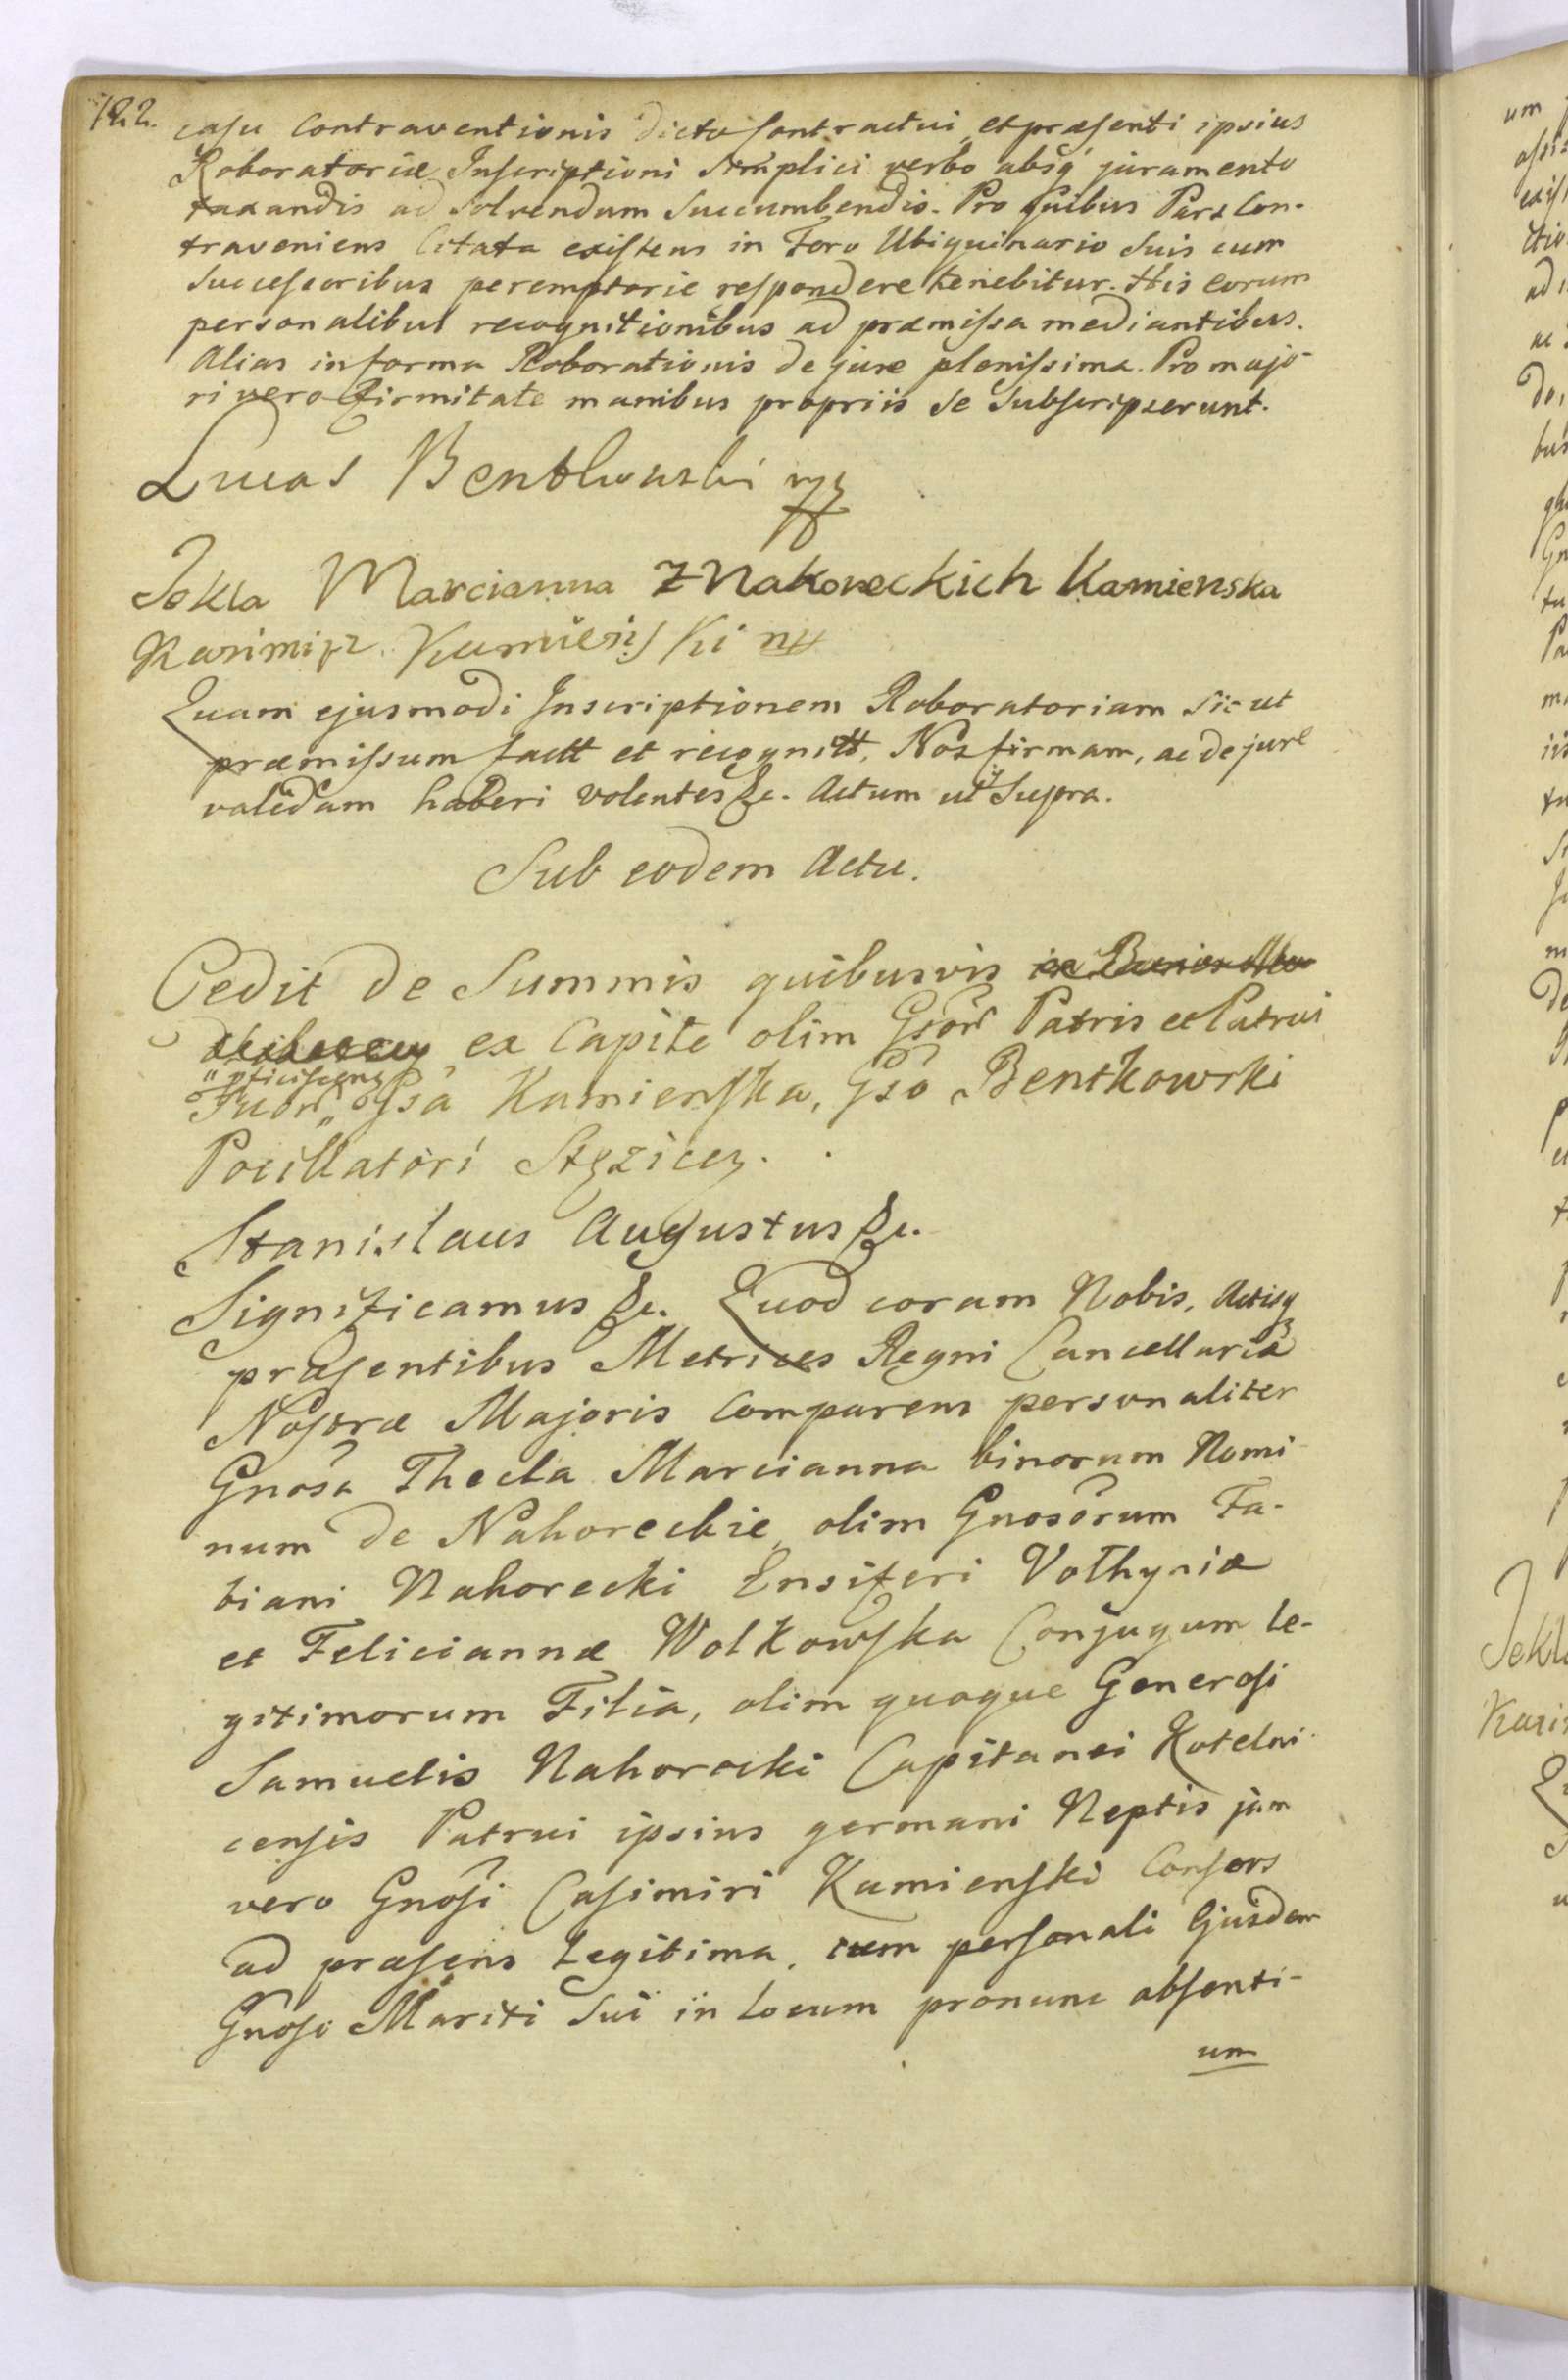 122.
casu Contraventionis dicto Contractui, et præsenti ipsius
Roboratoriæ Inscriptioni simplici verbo absq juramento
taxandis ad Solvendum Succumbendis. Pro quibus Pars Con-
traveniens Citata existens in Foro Ubiquinario Suis cum
Successoribus peremptorie respondere tenebitur. His eorum
personalibus recognitionibus ad præmissa mediantibus.
Alias in forma Roborationis de jure plenissima. Pro majo-
ri vero firmitate manibus propriis se Subscripserunt.
Lucas Bentkowski
Tekla Marcianna z Nakoreckich Kamienska
Kazimirz Kamieński
Quam ejusmodi Inscriptionem Roboratoriam sic ut
præmissum factt et recognitt, Nos firmam, ac de jure
validam haberi volentes &c. Actum ut Supra.
Sub eodem Actu.
Cedit de Summis quibusvis
ex Capite olim Gsõr Patris et Patrui
Suor Gsa Kamienska, Gso Bentkowski
Pocillatori Stęzicen.
Stanislaus Augustus &c.
Significamus &c. Quod coram Nobis, Actisq
præsentibus Metrices Regni Cancellariæ
Nostræ Majoris Comparens personaliter
Gnosa Thecla Marcianna binorum Nomi-
num de Nahoreckie, olim Gnosorum Fa-
biani Nahorecki Ensiferi Volhyniæ
et Feliciannæ Wolkowska Conjugum le-
gitimorum Filia, olim quoque Generosi
Samuelis Nahorecki Capitanei Kotelni-
censis Patrui ipsius germani Neptis jam
vero Gnosi Casimiri Kamienski Consors
ad præsens Legitima, cum personali Ejusdem
Gnosi Mariti Sui in locum pronunc absenti-
um